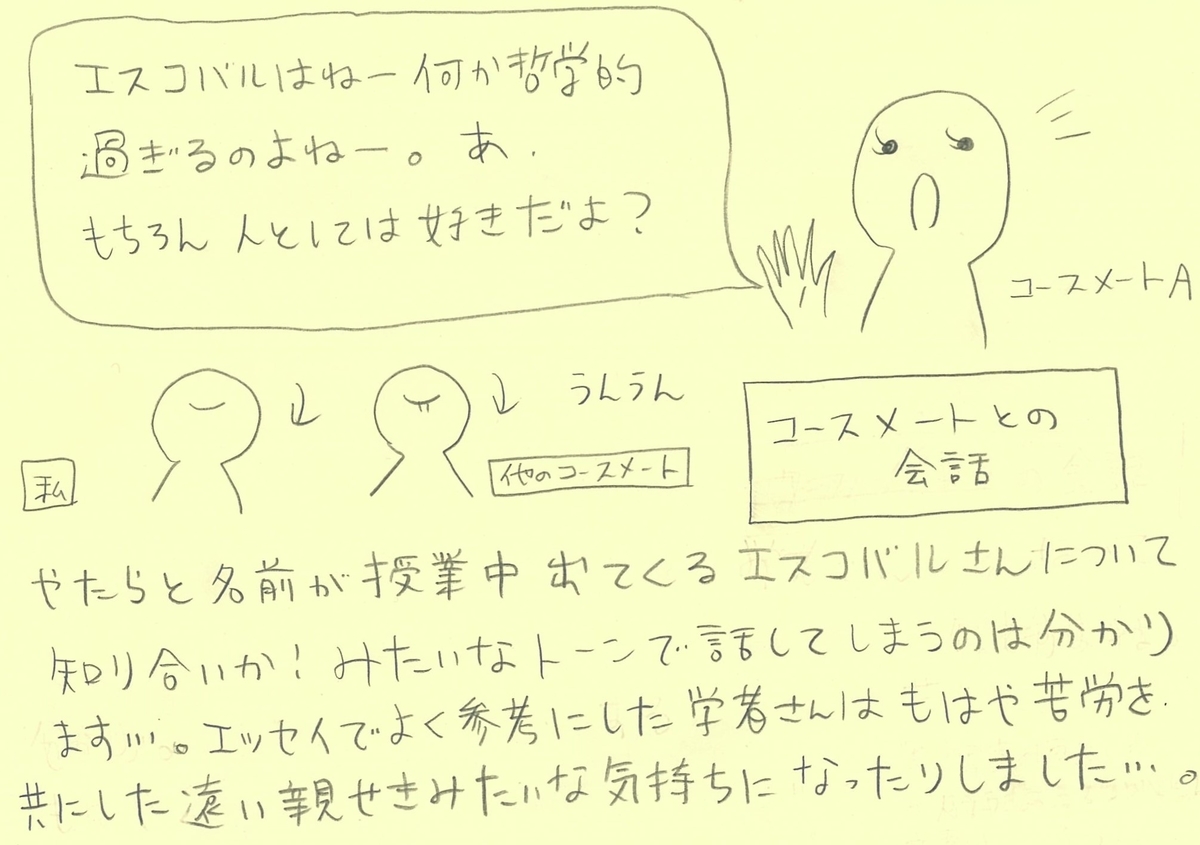 エスコバルはねー何か哲学的
過ぎるのよねー。あ、
もちろん 人としては好きだよ?
コースメートA
うんうん
私
他のコースメート
コースメートとの
会話
やたらと名前が授業中出てくるエスコバルさんについて
知り合いか!みたいなトーンで話してしまうのは分かり
ます…。エッセイでよく参考にした学者さんはもはや苦労を
共にした遠い親せきみたいな気持ちになったりしました…。